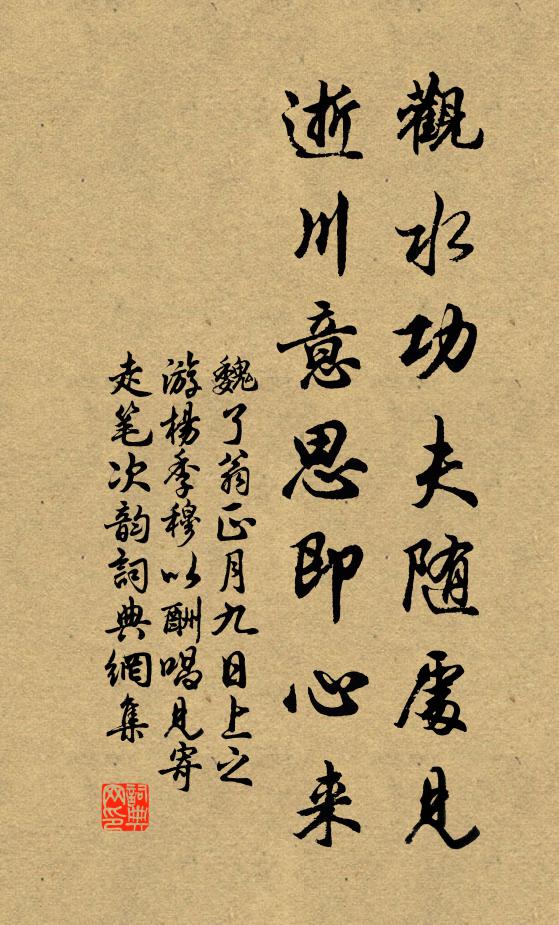 觀水功夫随處見
逝川意思即心来
魏了翁正月九日上之
游楊季穆以酬唱見寄
走笔次韵詞典網集
詞典
网印